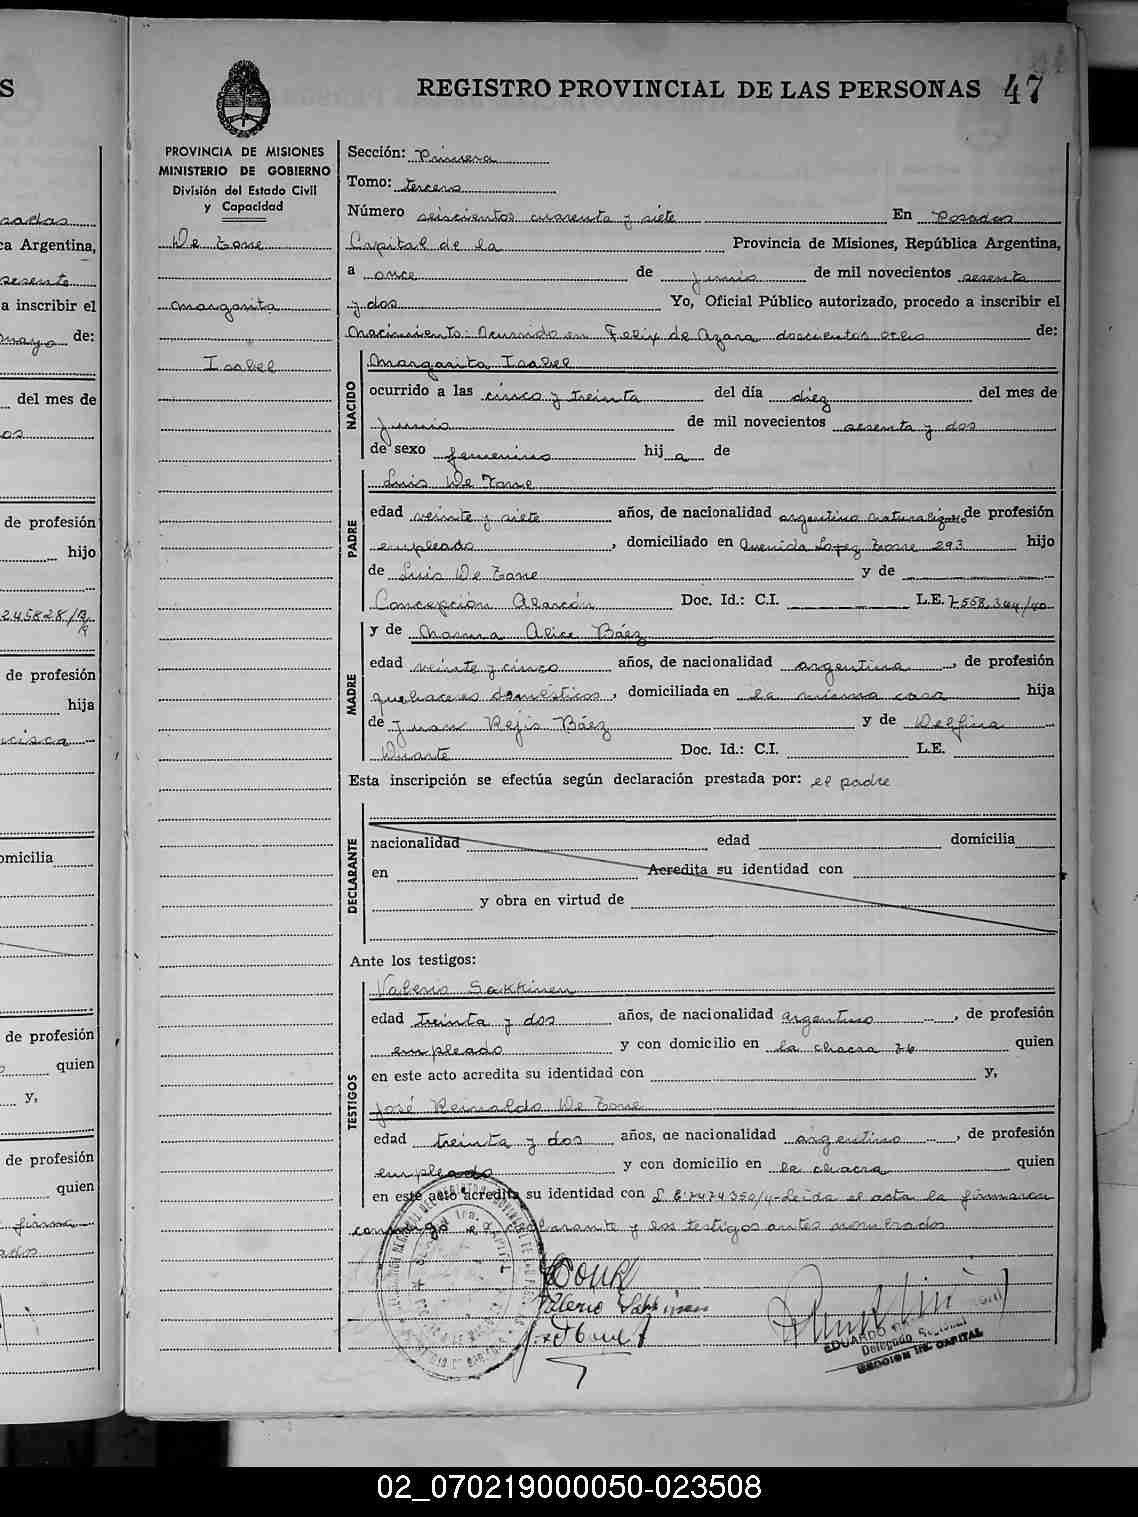 REGISTRO PROVINCIAL DE LAS PERSONAS 47
PROVINCIA DE MISIONES
MINISTERIO DE GOBIERNO
División del Estado Civil
y Capacidad
De Torre
Margarita
Isabel
Sección: Primera
Tomo: tercero
Número seiscientos cuarenta y siete En Posadas
Capital de la Provincia de Misiones, República Argentina,
a once de junio de mil novecientos sesenta
y dos Yo, Oficial Público autorizado, procedo a inscribir el
Nacimiento: Ocurrido en Felix de Azara doscientos ocho de:
NACIDO
Margarita Isabel
ocurrido a las cinco y treinta del día diez del mes de
junio de mil novecientos sesenta y dos
de sexo femenino hij a de
PADRE
Luis De Torre
edad veinte y siete años, de nacionalidad argentino naturalizado de profesión
empleado, domiciliado en Avenida Lopez Torre 293 hijo
de Luis De Torre y de
Concepción Alarcón Doc. Id.: C.I. L.E. 7.558.344/40
MADRE
y de Norma Alice Báez
edad veinte y cinco años, de nacionalidad argentina, de profesión
quehaceres domésticos, domiciliada en la misma casa hija
de Juan Rejis Báez y de Delfina
Duarte Doc. Id.: C.I. L.E.
Esta inscripción se efectúa según declaración prestada por: el padre
DECLARANTE
nacionalidad edad domicilia
en Acredita su identidad con
y obra en virtud de
Ante los testigos:
TESTIGOS
Valerio Sakkinen
edad treinta y dos años, de nacionalidad argentino, de profesión
empleado y con domicilio en la chacra 76 quien
en este acto acredita su identidad con y,
José Reinaldo De Torre
edad treinta y dos años, de nacionalidad argentino, de profesión
empleado y con domicilio en la chacra quien
en este acto acredita su identidad con L.E. 7474350/4-Leida el acta la firman
conmigo el declarante y los testigos antes nombrados
Valerio Sakkinen
EDUARDO
Delegado Regional
SECCION 1ra. CAPITAL
S
sadas
ca Argentina,
sesenta
a inscribir el
mayo de:
del mes de
os
de profesión
hijo
245828/
de profesión
hija
ncisca
omicilia
de profesión
quien
y,
de profesión
quien
firma
ados
02_070219000050-023508